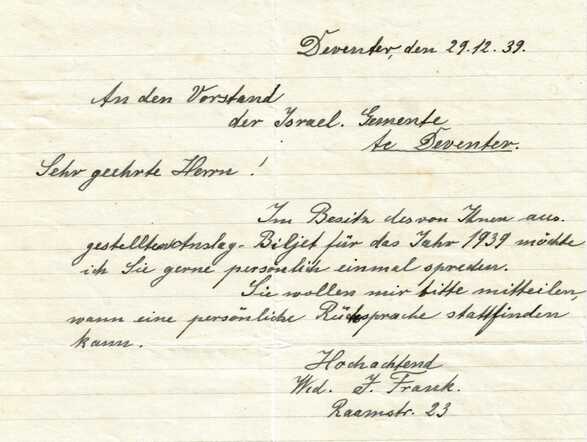 Deventer, den 29.12.39.
An den Vorstand
der Israel. Gemente
te Deventer.
Sehr geehrte Herrn!
Im Besitz des von Ihnen aus-
gestellten Anslag-Biljet für das Jahr 1939 möchte
ich Sie gerne persönlich einmal spreden.
Sie wollen mir bitte mitteilen,
wann eine persönliche Rücksprache stattfinden
kann.
Hochachtend
Wed. J. Frank.
Raamstr. 23